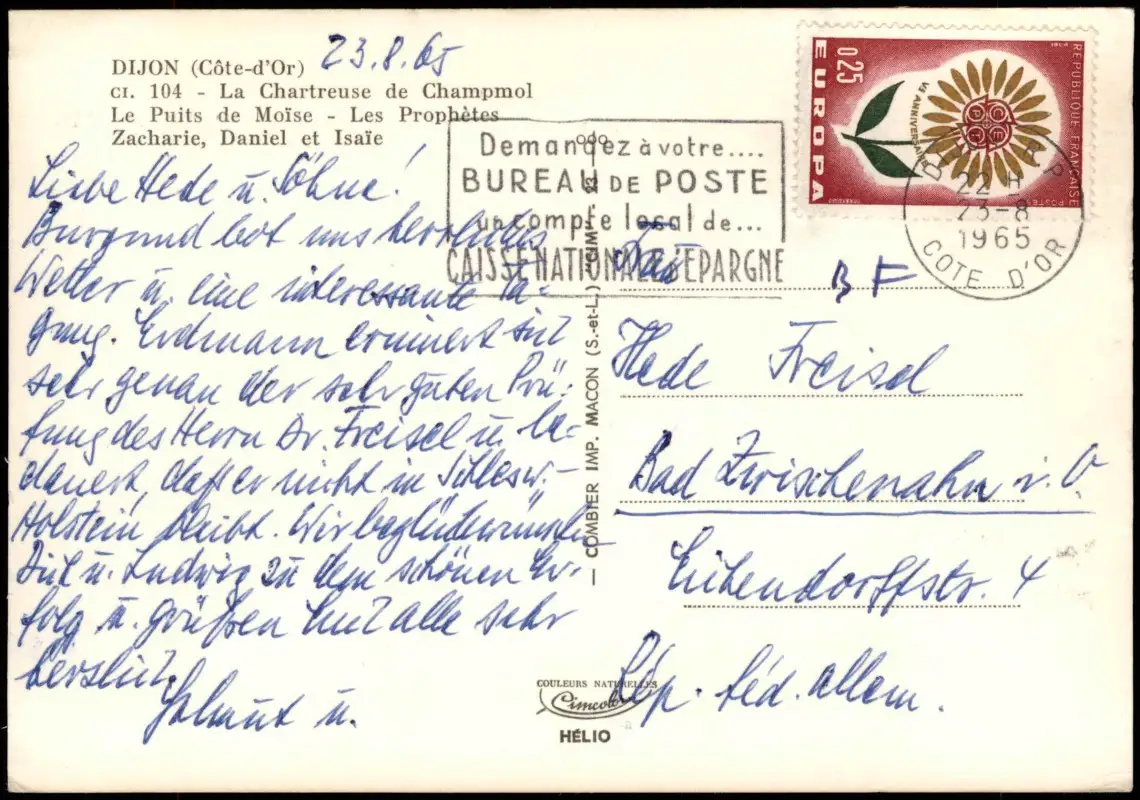 23.8.65
DIJON (Côte-d'Or)
CI. 104 - La Chartreuse de Champmol
Le Puits de Moïse - Les Prophètes
Zacharie, Daniel et Isaïe
Liebe Hede u. Söhne!
Burgund bot uns herrliches
Wetter u. eine interessante Ta-
gung. Erdmann erinnert sich
sehr genau der sehr guten Prü-
fung des Herrn Dr. Freisel u. be-
dauert, daß er nicht in Schlesw.-
Holstein bleibt. Wir beglückwünschen
Dich u. Ludwig zu dem schönen Er-
folg u. grüßen Euch alle sehr
herzlich
u.
Demandez à votre....
BUREAU DE POSTE
un compte local de...
CAISSE NATIONALE D'EPARGNE
0,25
EUROPA
RÉPUBLIQUE FRANÇAISE
POSTES
Ve ANNIVERSAIRE
CEPT
DIJON R.P.
22 H
23-8
1965
COTE D'OR
— COMBIER IMP. MACON (S.-et-L.) "CIM"
B F
Hede Freisel
Bad Zwischenahn i. O
Eichendorffstr. 4
Rép. féd. allem.
COULEURS NATURELLES
Cimcolor
HÉLIO